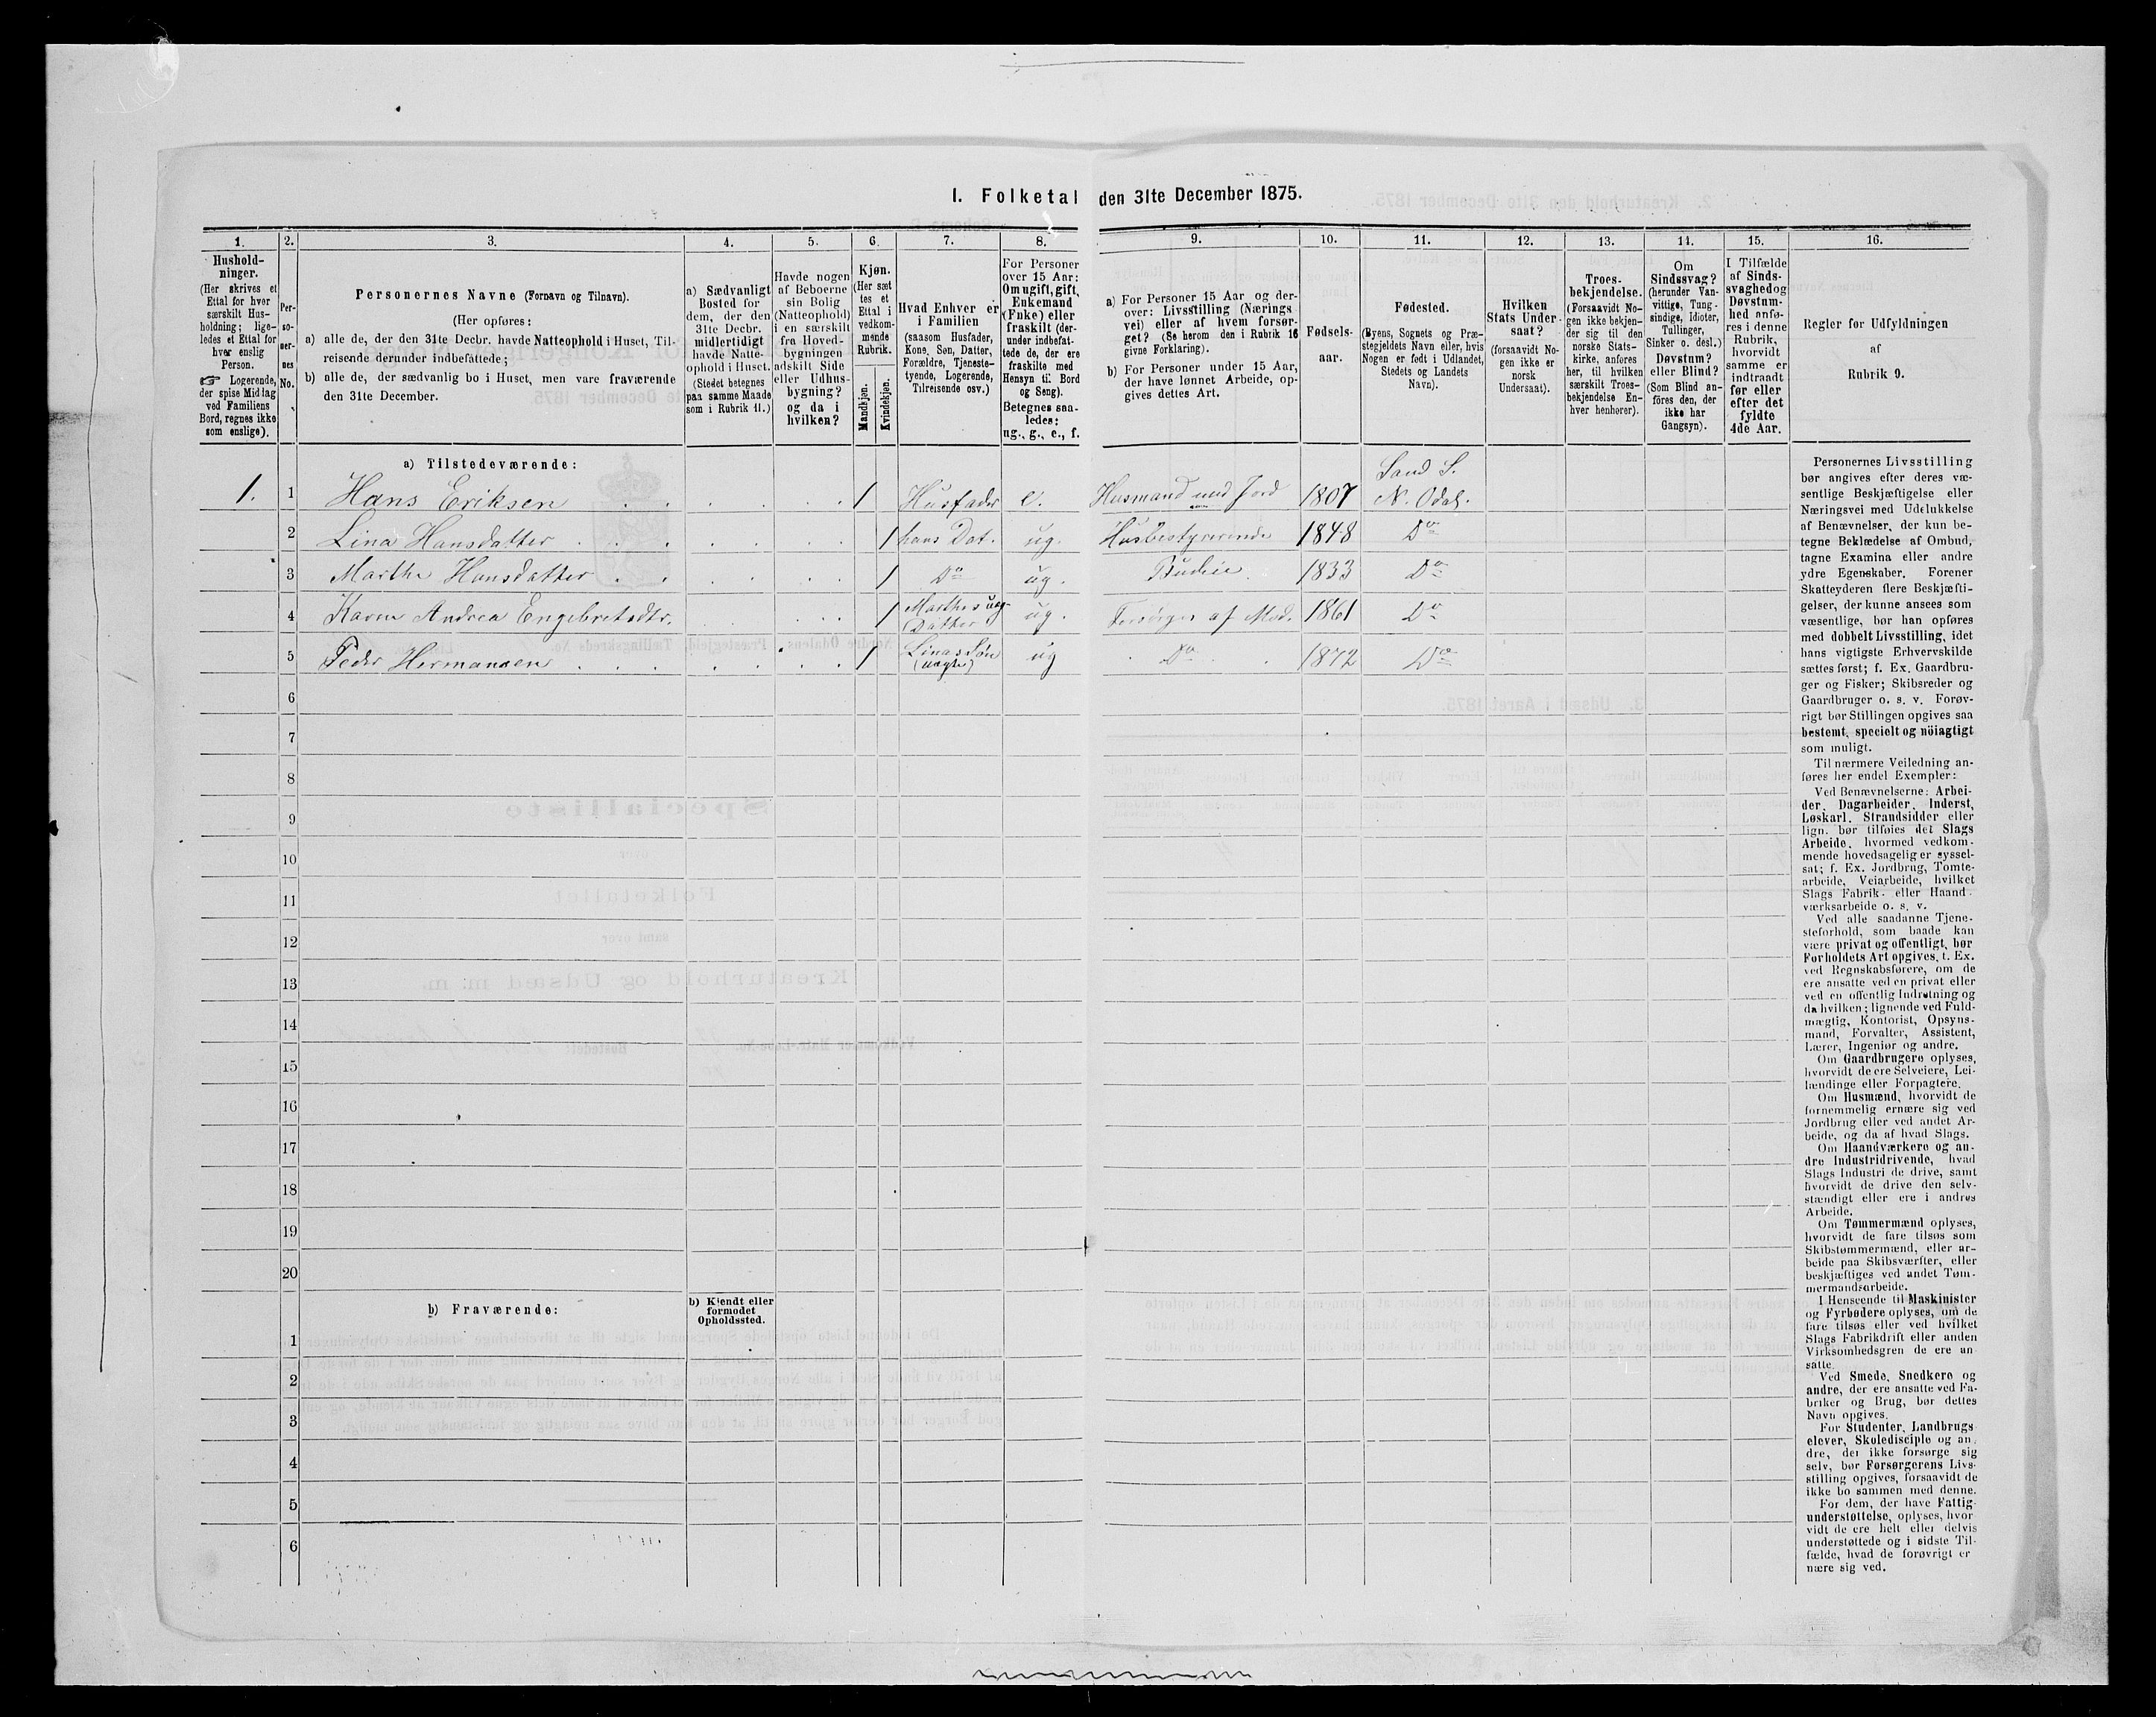 I. Folketal den 31te December 1875.
1. 2. 3. 4. 5. 6. 7. 8. 9. 10. 11. 12. 13. 14. 15. 16.
Hushold-
ninger.
(Her skrives et
Ettal for hver
særskilt Hus-
holdning; lige-
ledes et Ettal for
hver enslig
Person.
☞ Logerende,
der spise Middag
ved Familiens
Bord, regnes ikke
som enslige).
Per-
so-
ner-
nes
No.
Personernes Navne (Fornavn og Tilnavn).
(Her opføres:
a) alle de, der den 31te Decbr. havde Natteophold i Huset, Til-
reisende derunder indbefattede;
b) alle de, der sædvanlig bo i Huset, men vare fraværende
den 31te December.
a) Sædvanligt
Bosted for
dem, der den
31te Decbr.
midlertidigt
havde Natte-
ophold i Huset.
(Stedet betegnes
paa samme Maade
som i Rubrik 11.)
Havde nogen
af Beboerne
sin Bolig
(Natteophold)
i en særskilt
fra Hoved-
bygningen
adskilt Side
eller Udhus-
bygning?
og da i
hvilken?
Kjøn.
(Her sæt
tes et
Ettal i
vedkom-
mende
Rubrik.
Mandkjøn.
Kvindekjøn.
Hvad Enhver er
i Familien
(saasom Husfader,
Kone, Søn, Datter,
Forældre, Tjeneste-
tyende, Logerende,
Tilreisende osv.)
For Personer
over 15 Aar:
Om ugift, gift,
Enkemand
(Enke) eller
fraskilt (der-
under indbefat-
tede de, der ere
fraskilte med
Hensyn til Bord
og Seng).
Betegnes saa-
ledes:
ug., g., e., f.
a) For Personer 15 Aar og der-
over: Livsstilling (Nærings
vei) eller af hvem forsør-
get? (Se herom den i Rubrik 16
givne Forklaring).
b) For Personer under 15 Aar,
der have lønnet Arbeide, op-
gives dettes Art.
Fødsels-
aar.
Fødested.
(Byens, Sognets og Præ-
stegjeldets Navn eller, hvis
Nogen er født i Udlandet,
Stedets og Landets
Navn).
Hvilken
Stats Under-
saat?
(forsaavidt No-
gen ikke er
norsk
Undersaat).
Troes-
bekjendelse.
(Forsaavidt No-
gen ikke bekjen-
der sig til den
norske Stats-
kirke, anføres
her, til hvilken
særskilt Troes-
bekjendelse En-
hver henhører).
Om
Sindssvag?
(herunder Van-
vittige, Tung-
sindige, Idioter,
Tullinger,
Sinker o. desl.)
Døvstum?
eller Blind?
(Som Blind an-
føres den, der
ikke har
Gangsyn).
I Tilfælde
af Sinds-
svaghed og
Døvstum-
hed anfø-
res i denne
Rubrik,
hvorvidt
samme er
indtraadt
før eller
efter det
fyldte
4de Aar.
Regler for Udfyldningen
af
Rubrik 9.
a) Tilstedeværende:
Sand S.
1. 1 Hans Eriksen 1 Husfader e. Husmand med Jord 1807 N. Odal.
2 Lina Hansdatter 1 hans Dat. ug. Husbestyrerinde 1848 Do
3 Marthe Hansdatter 1 Do ug. Budeie 1833 Do
4 Karen Andrea Engebretsdtr. 1 Marthes uæg- Datter ug. Forsørges af Mod. 1861 Do
5 Peder Hermansen 1 Linas Søn (uægte) ug Do 1872 Do
6
7
8
9
10
11
12
13
14
15
16
17
18
19
20
b) Fraværende:
b) Kjendt eller
formodet
Opholdssted.
1
2
3
4
5
6
Personernes Livsstilling
bør angives efter deres væ-
sentlige Beskjæftigelse eller
Næringsvei med Udelukkelse
af Benævnelser, der kun be-
tegne Beklædelse af Ombud,
tagne Examina eller andre
ydre Egenskaber. Forener
Skatteyderen flere Beskjæfti-
gelser, der kunne ansees som
væsentlige, bør han opføres
med dobbelt Livsstilling, idet
hans vigtigste Erhvervskilde
sættes først; f. Ex. Gaardbru-
ger og Fisker; Skibsreder og
Gaardbruger o. s. v. Forøv-
rigt bør Stillingen opgives saa
bestemt, specielt og nöiagtigt
som muligt.
Til nærmere Veiledning an-
føres her endel Exempler:
Ved Benævnelserne: Arbei-
der, Dagarbeider, Inderst,
Løskarl, Strandsidder eller
lign. bør tilføies det Slags
Arbeide, hvormed vedkom-
mende hovedsagelig er syssel-
sat; f. Ex. Jordbrug, Tomte-
arbeide, Veiarbeide, hvilket
Slags Fabrik- eller Haand-
værksarbeide o. s. v.
Ved alle saadanne Tjene-
steforhold, som baade kan
være privat og offentligt, bør
Forholdets Art opgives, t. Ex.
ved Regnskabsførere, om de
ere ansatte ved en privat eller
ved en offentlig Indretning og
da hvilken; lignende ved Fuld-
mægtig, Kontorist, Opsyns-
mand, Forvalter, Assistent,
Lærer, Ingeniør og andre.
Om Gaardbrugere oplyses,
hvorvidt de ere Selveiere, Lei-
lændinge eller Forpagtere.
Om Husmænd, hvorvidt de
fornemmelig ernære sig ved
Jordbrug eller ved andet Ar-
beide, og da af hvad Slags.
Om Haandværkere og an-
dre Industridrivende, hvad
Slags Industri de drive, samt
hvorvidt de drive den selv-
stændigt eller ere i andres
Arbeide.
Om Tømmermænd oplyses,
hvorvidt de fare tilsøs som
Skibstømmermænd, eller ar-
beide paa Skibsværfter, eller
beskjæftiges ved andet Tøm-
mermandsarbeide.
I Henseende til Maskinister
og Fyrbødere oplyses, om de
fare tilsøs eller ved hvilket
Slags Fabrikdrift eller anden
Virksomhedsgren de ere an-
satte.
Ved Smede, Snedkere og
andre, der ere ansatte ved Fa-
briker og Brug, bør dettes
Navn opgives.
For Studenter, Landbrugs-
elever, Skoledisciple og an-
dre, der ikke forsørge sig
selv, bør Forsørgerens Livs-
stilling opgives, forsaavidt de
ikke bo sammen med denne.
For dem, der have Fattig-
understøttelse, oplyses, hvor-
vidt de ere helt eller delvis
understøttede og i sidste Til-
fælde, hvad de forøvrigt er-
nære sig ved.